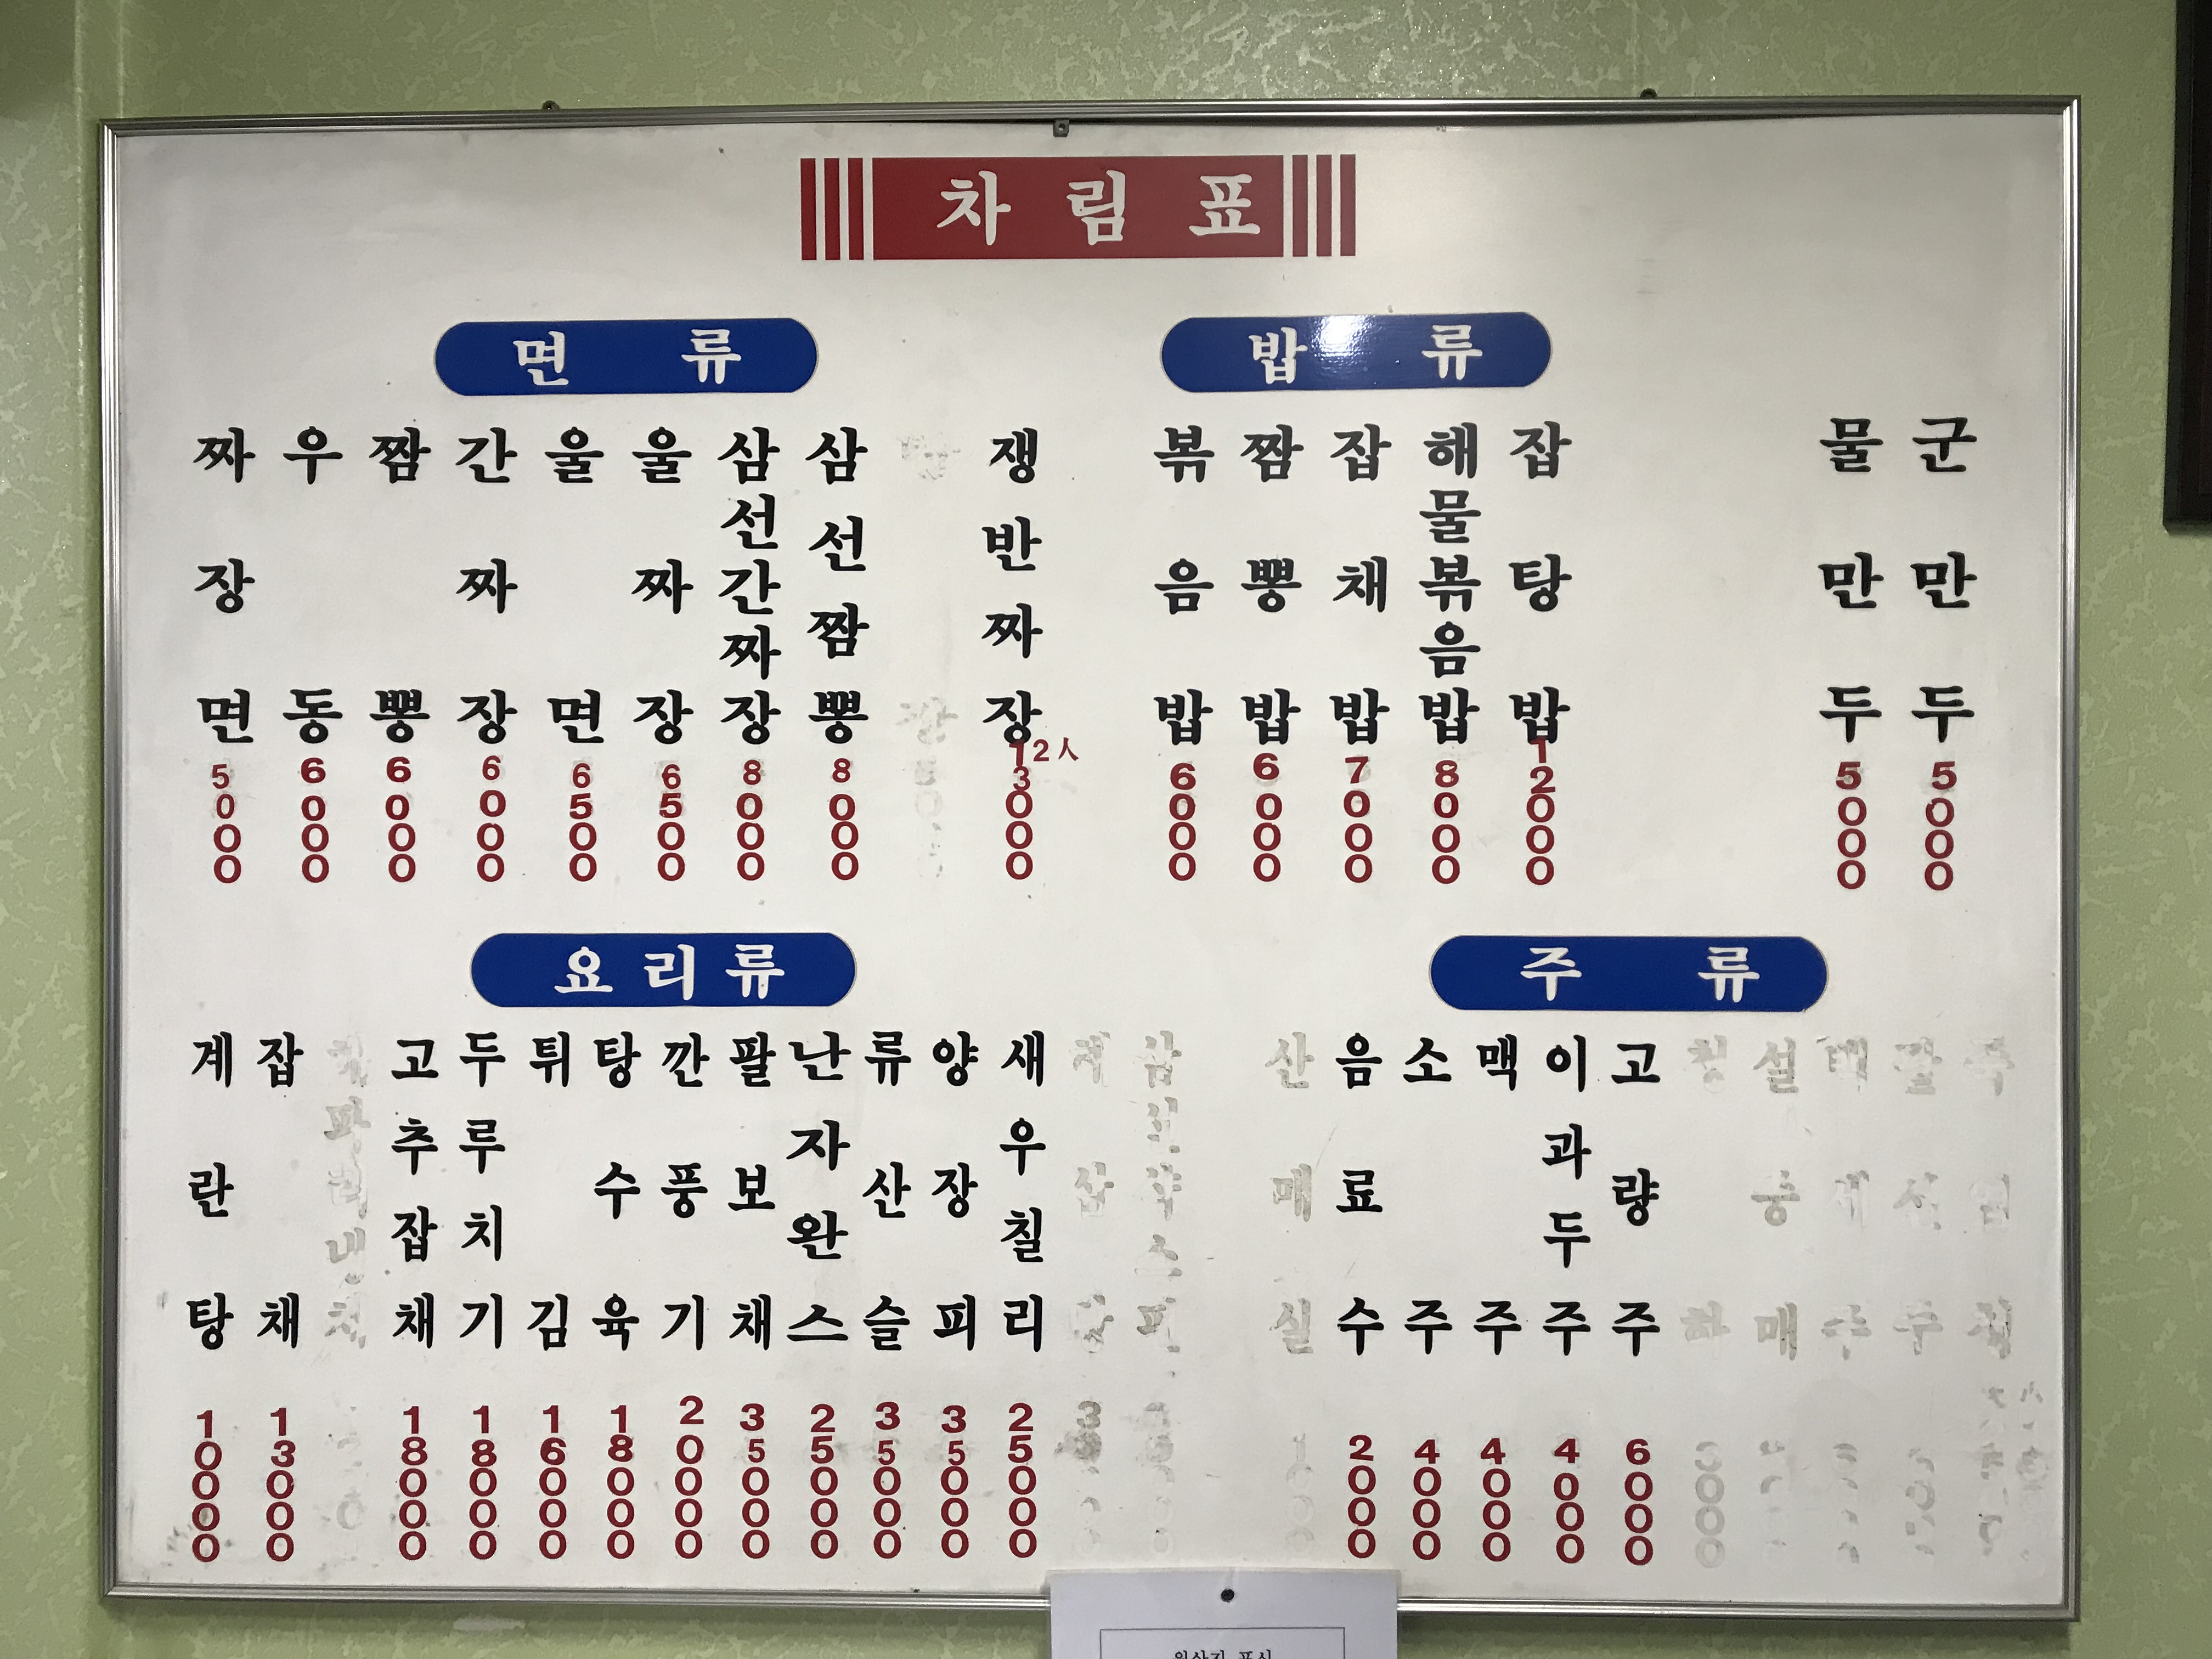 차림표
면류
짜장면 5000
우동 6000
짬뽕 6000
간짜장 6000
울면 6500
울짜장 6500
삼선간짜장 8000
삼선짬뽕 8000
쟁반짜장 2人 13000
밥류
볶음밥 6000
짬뽕밥 6000
잡채밥 7000
해물볶음밥 8000
잡탕밥 12000
물만두 5000
군만두 5000
요리류
계란탕 10000
잡채 13000
고추잡채 18000
두루치기 18000
튀김 16000
탕수육 18000
깐풍기 20000
팔보채 35000
난자완스 25000
류산슬 35000
양장피 35000
새우칠리 25000
주류
산매실
음료수 2000
소주 4000
맥주 4000
이과두주 4000
고량주 6000
설중매